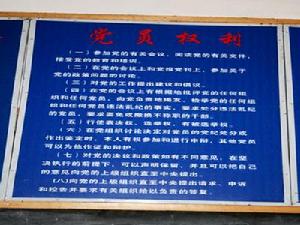 党员权利
(一)参加党的有关会议,阅读党的有关文件,
接受党的教育和培训。
(二)在党的会议上和党报党刊上,参加关于
党的政策问题的讨论。
(三)对党的工作提出建议和倡议。
(四)在党的会议上有根据地批评党的任何组
织和任何党员,向党负责地揭发、检举党的任何组
织和任何党员违法乱纪的事实,要求处分违法乱纪
的党员,要求罢免或撤换不称职的干部。
(五)行使表决权、选举权,有被选举权。
(六)在党组织讨论决定对党员的党纪处分或
作出鉴定时,本人有权参加和进行申辩,其他党员
可以为他作证和辩护。
(七)对党的决议和政策如有不同意见,在坚
决执行的前提下,可以声明保留,并且可以把自己
的意见向党的上级组织直至中央提出。
(八)向党的上级组织直至中央提出请求、申诉
和控告并要求有关组织给以负责的答复。